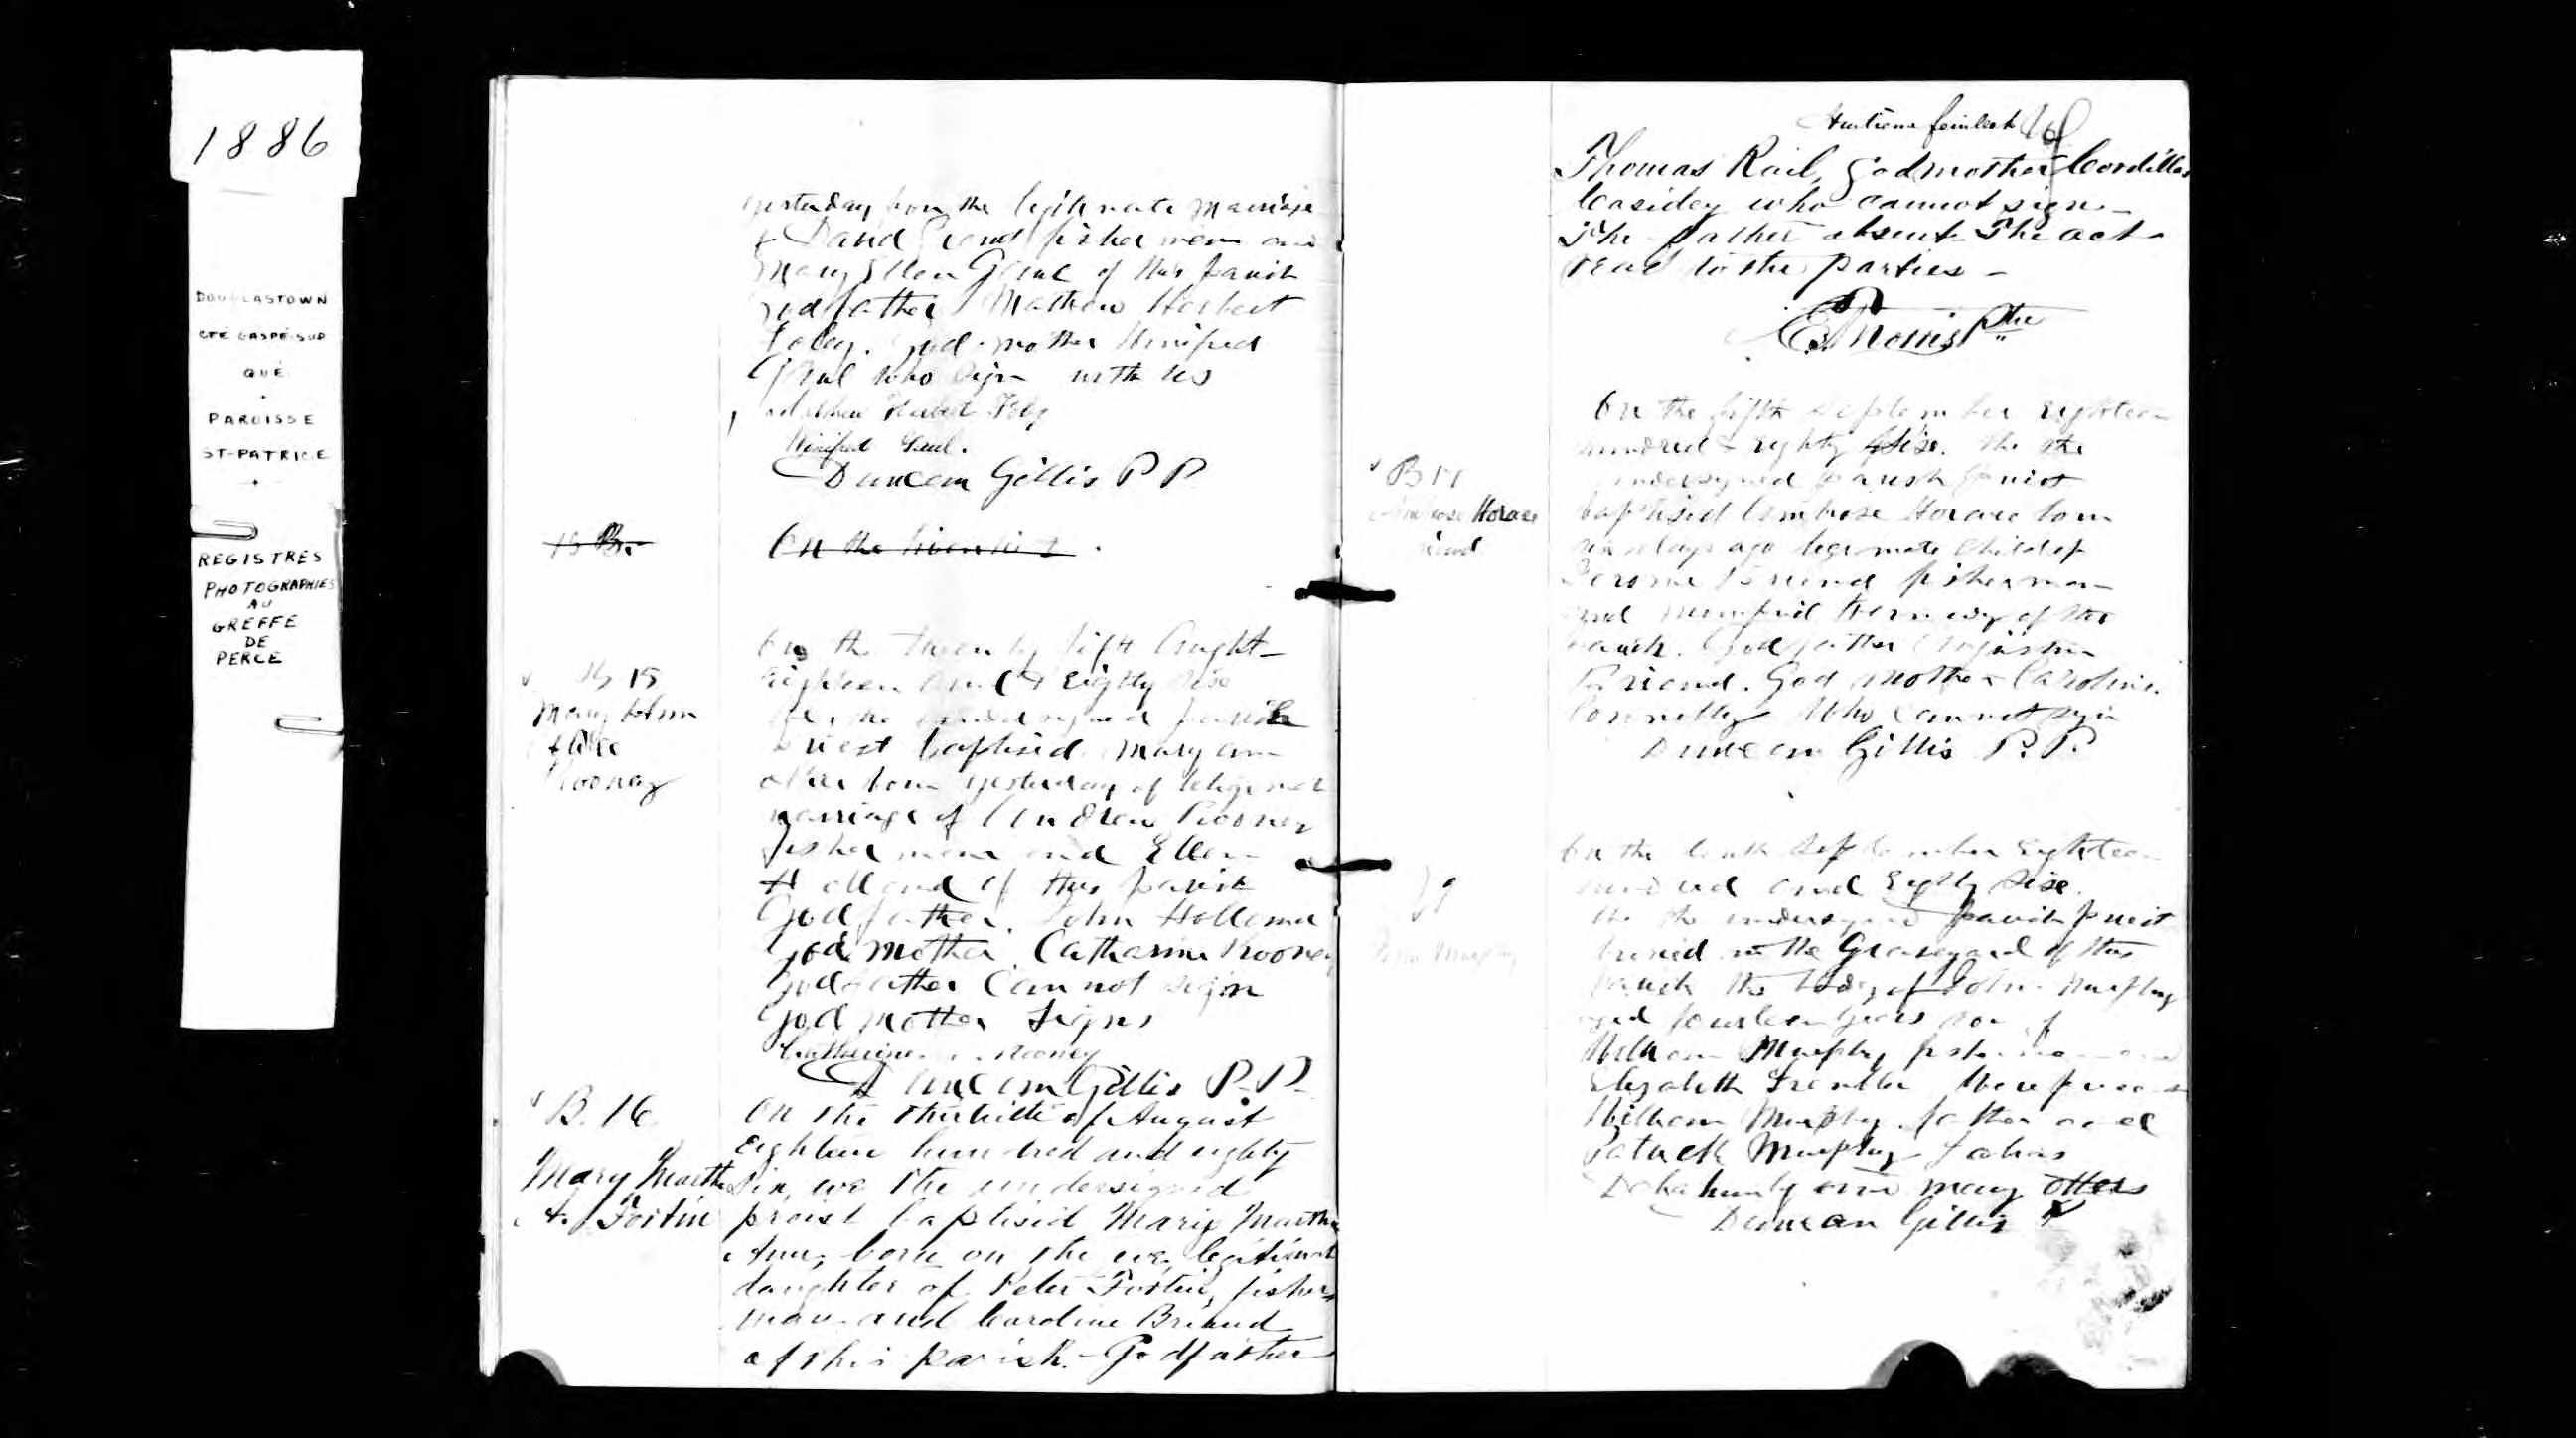 1886
DOUGLASTOWN
CTÉ GASPÉ-SUD
QUÉ.
PAROISSE
ST-PATRICE
REGISTRES
PHOTOGRAPHIES
AU
GREFFE
DE
PERCE
yesterday from the legitimate marriage
of David fisherman and
Mary Ellen of this parish
Godfather Mathew Herbert
Foley. God-mother Winifred
who sign with us
Herbert Foley
Winifred
Duncan Gillis P P
15 B.
On the
15
Mary Ann
Alice
Rooney
On the twenty fift August
eighteen hund & Eighty Six
We the undersigned parish
Priest baptised Mary ann
born yesterday of
marriage of Andrew Rooney
fisher man and Ellen
Holland of this parish
Godfather. John Holland
God mother Catharine Rooney
Godfather Can not sign
God mother signs
Catherine Rooney
Duncan Gillis P.P.
B. 16
Mary Martha
A. Fortin
On the of August
eighteen hundred and eighty
six, we the undersigned
preist baptised Mary Martha
Ann, born on the eve, legitimate
daughter of Peter Fortin, fisher
man and Caroline Briand
of this parish. - Godfather
Thomas Rail, Godmother Cordilla
Casidey who cannot sign -
The father absent The act
read to the parties -
E. Morris Ptre
B 17
Ambrose Horace
Briand
On the fifth September eighteen
hundred & eighty Six. We the
undersigned parish priest
baptised Ambrose Horace born
six days ago child of
Jerome Briend fisherman
and of this
parish. Godfather
Briend. God mother Caroline
Connolly Who cannot sign
Duncan Gillis P. P.
John Murphy
On the tenth September Eighteen
hundred and Eighty Six.
We the undersigned parish priest
buried in the Graveyard of this
parish the body of John Murphy
aged fourteen years son of
William Murphy fisherman and
Elizabeth Were present
William Murphy father and
Patrick Murphy
and many others
Duncan Gillis